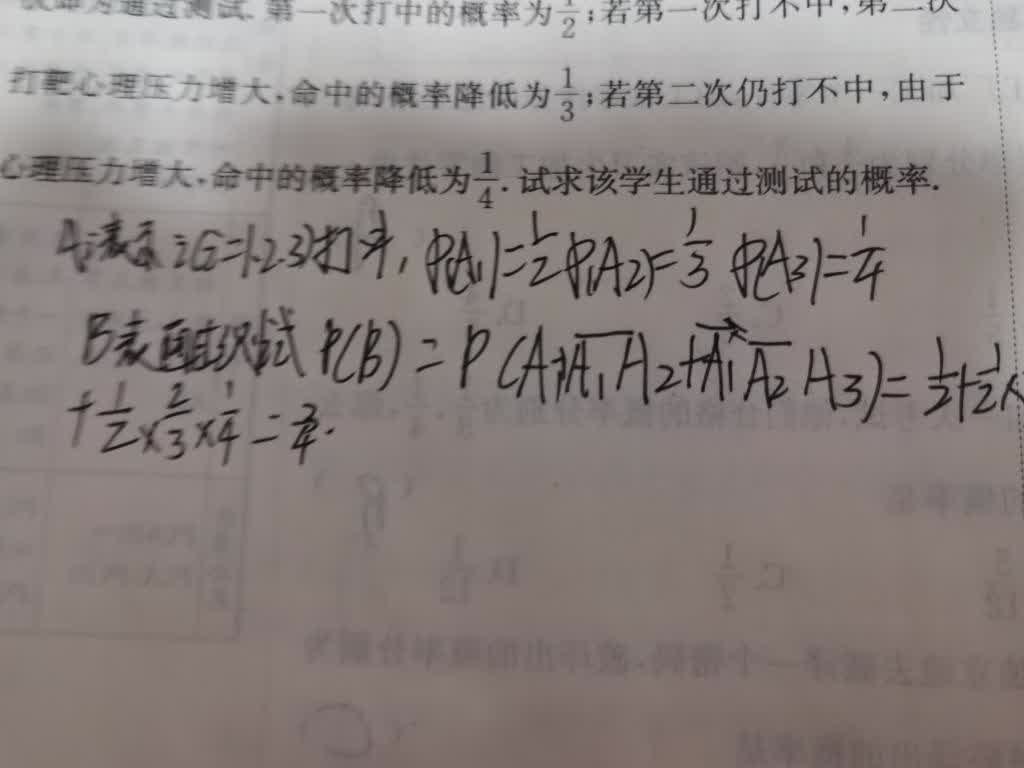 次即为通过测试. 第一次打中的概率为1/2;若第一次打不中,第二次
打靶心理压力增大,命中的概率降低为1/3;若第二次仍打不中,由于
心理压力增大,命中的概率降低为1/4.试求该学生通过测试的概率.
Ai表示i(i=1.2.3)打中, P(A1)=1/2 P(A2)=1/3 P(A3)=1/4
B表 测试 P(B)=P(A1+A̅1A2+A̅1A̅2A3)=1/2+1/2×
+1/2×2/3×1/4=3/4.